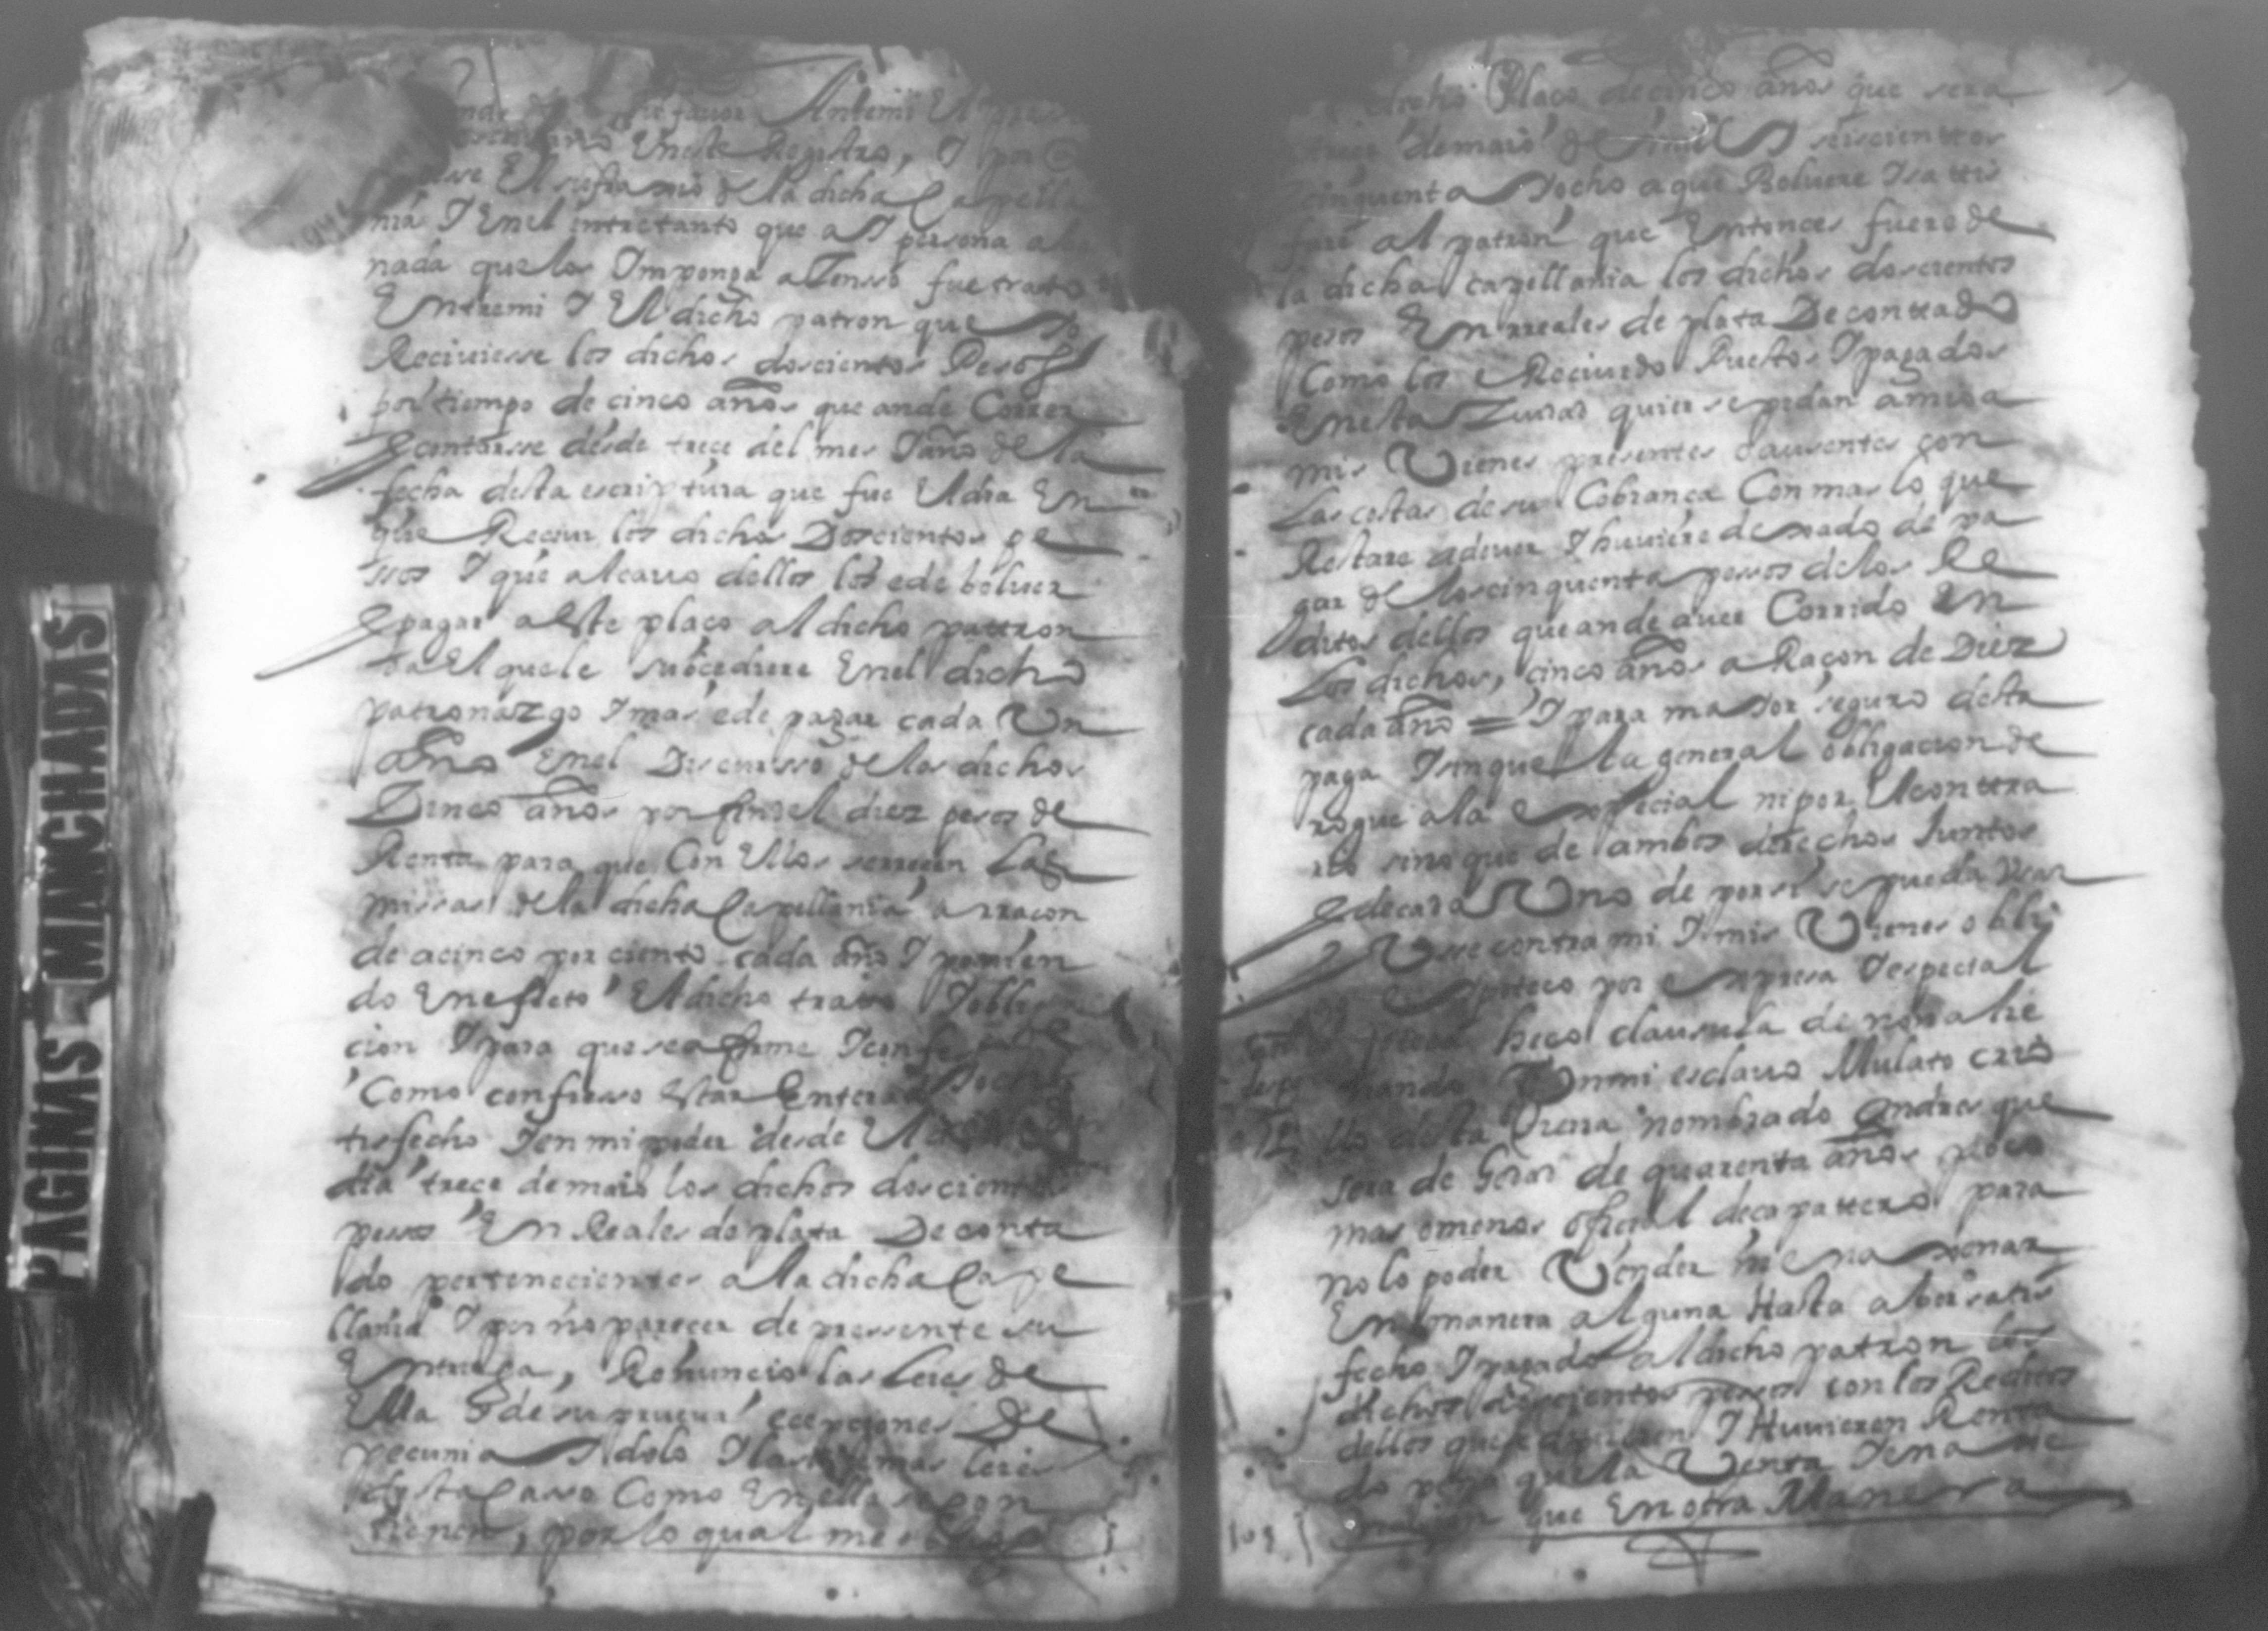 PAGINAS MANCHADAS
favor Antemi El
Eneste Registro, I por
El sufraxio de la dicha Capella
nia I Enel entretanto que aI persona
nada que los Imponga aZenso fue trato
Entremi I El dicho patron que Io
Reciuiesse los dichos doscientos Pesos
por tiempo de cinco años que ande Correr
Econtarsse desde trece del mes Iaño de la
fecha desta escriptura que fue Eldia En
que Reciui los dichos Doscientos pe
ssos I que alcauo dellos los ede boluer
Epagar aEste plaço al dicho pattron
oa El quele subcediere Enel dicho
patronazgo Imas ede pagar cada Un
año Enel Discursso de los dichos
Zinco años por finsel diez pesos de
Renta para que Con Ellos serreçen Las
missas de la dicha Capellania arraçon
de acinco por ciento cada año I ponien
do Enefecto El dicho tratto Iobliga
cion Ipara que sea firme Iconfesando
Como confiesso Estar Enterado
tisfecho Ienmipoder desde El
dia trece demaio los dichos doscientos
pesos En Reales de plata De conta
do pertenecientes a la dicha Cape
llania I por no pareçer de pressente su
Entrega, Renuncio las Leies de
Ella I de su prueua ecepciones De
pecunia I dolo I las demas leies
destaCasso Como Enellas secon
tienen, por lo qual me obligo
dicho Plaço decinco años que sera
trece demaio de Imill I seiscientos
cinquenta Iocho aque Boluere Isattis
fare al patron que Entonces fuere de
la dicha capellania los dichos doscientos
pesos En rreales de plata De conttado
Como los e Reciuido Puestos Ipagados
Enesta Ziudad quier se pidan amioa
mis Vienes presentes oausentes con
Las costas de su Cobrança Con mas lo que
Restare adeuer Ihuuiere dexado de pa
gar de los cinquenta pessos delos Re
ditos dellos que ande auer Corrido En
Los dichos, cinco años a Raçon de Diez
cada año = I para maIor seguro desta
paga Isinque la general obligacion de
rogue ala Especial nipor El conttra
rio sino que de ambos derechos Juntos
Edecada Uno de porsi se pueda usar
Usse contra mi I mis Vienes obli
Epoteco por Expresa Iespecial
heco clausula de no na he
Enmi esclauo Mulato crio
llo desta tierra nombrado Andres que
sera de hedad de quarenta años poco
mas omenos oficial deçapattero para
nolo poder Vender ni Enaxenar
En manera alguna Hasta aber satis
fecho Ipagado al dicho patron los
dichos doscientos pesos con los Reditos
dellos que I Huuieren Renta
do pena quela Venta Iena xe
nacion que En otra Manera